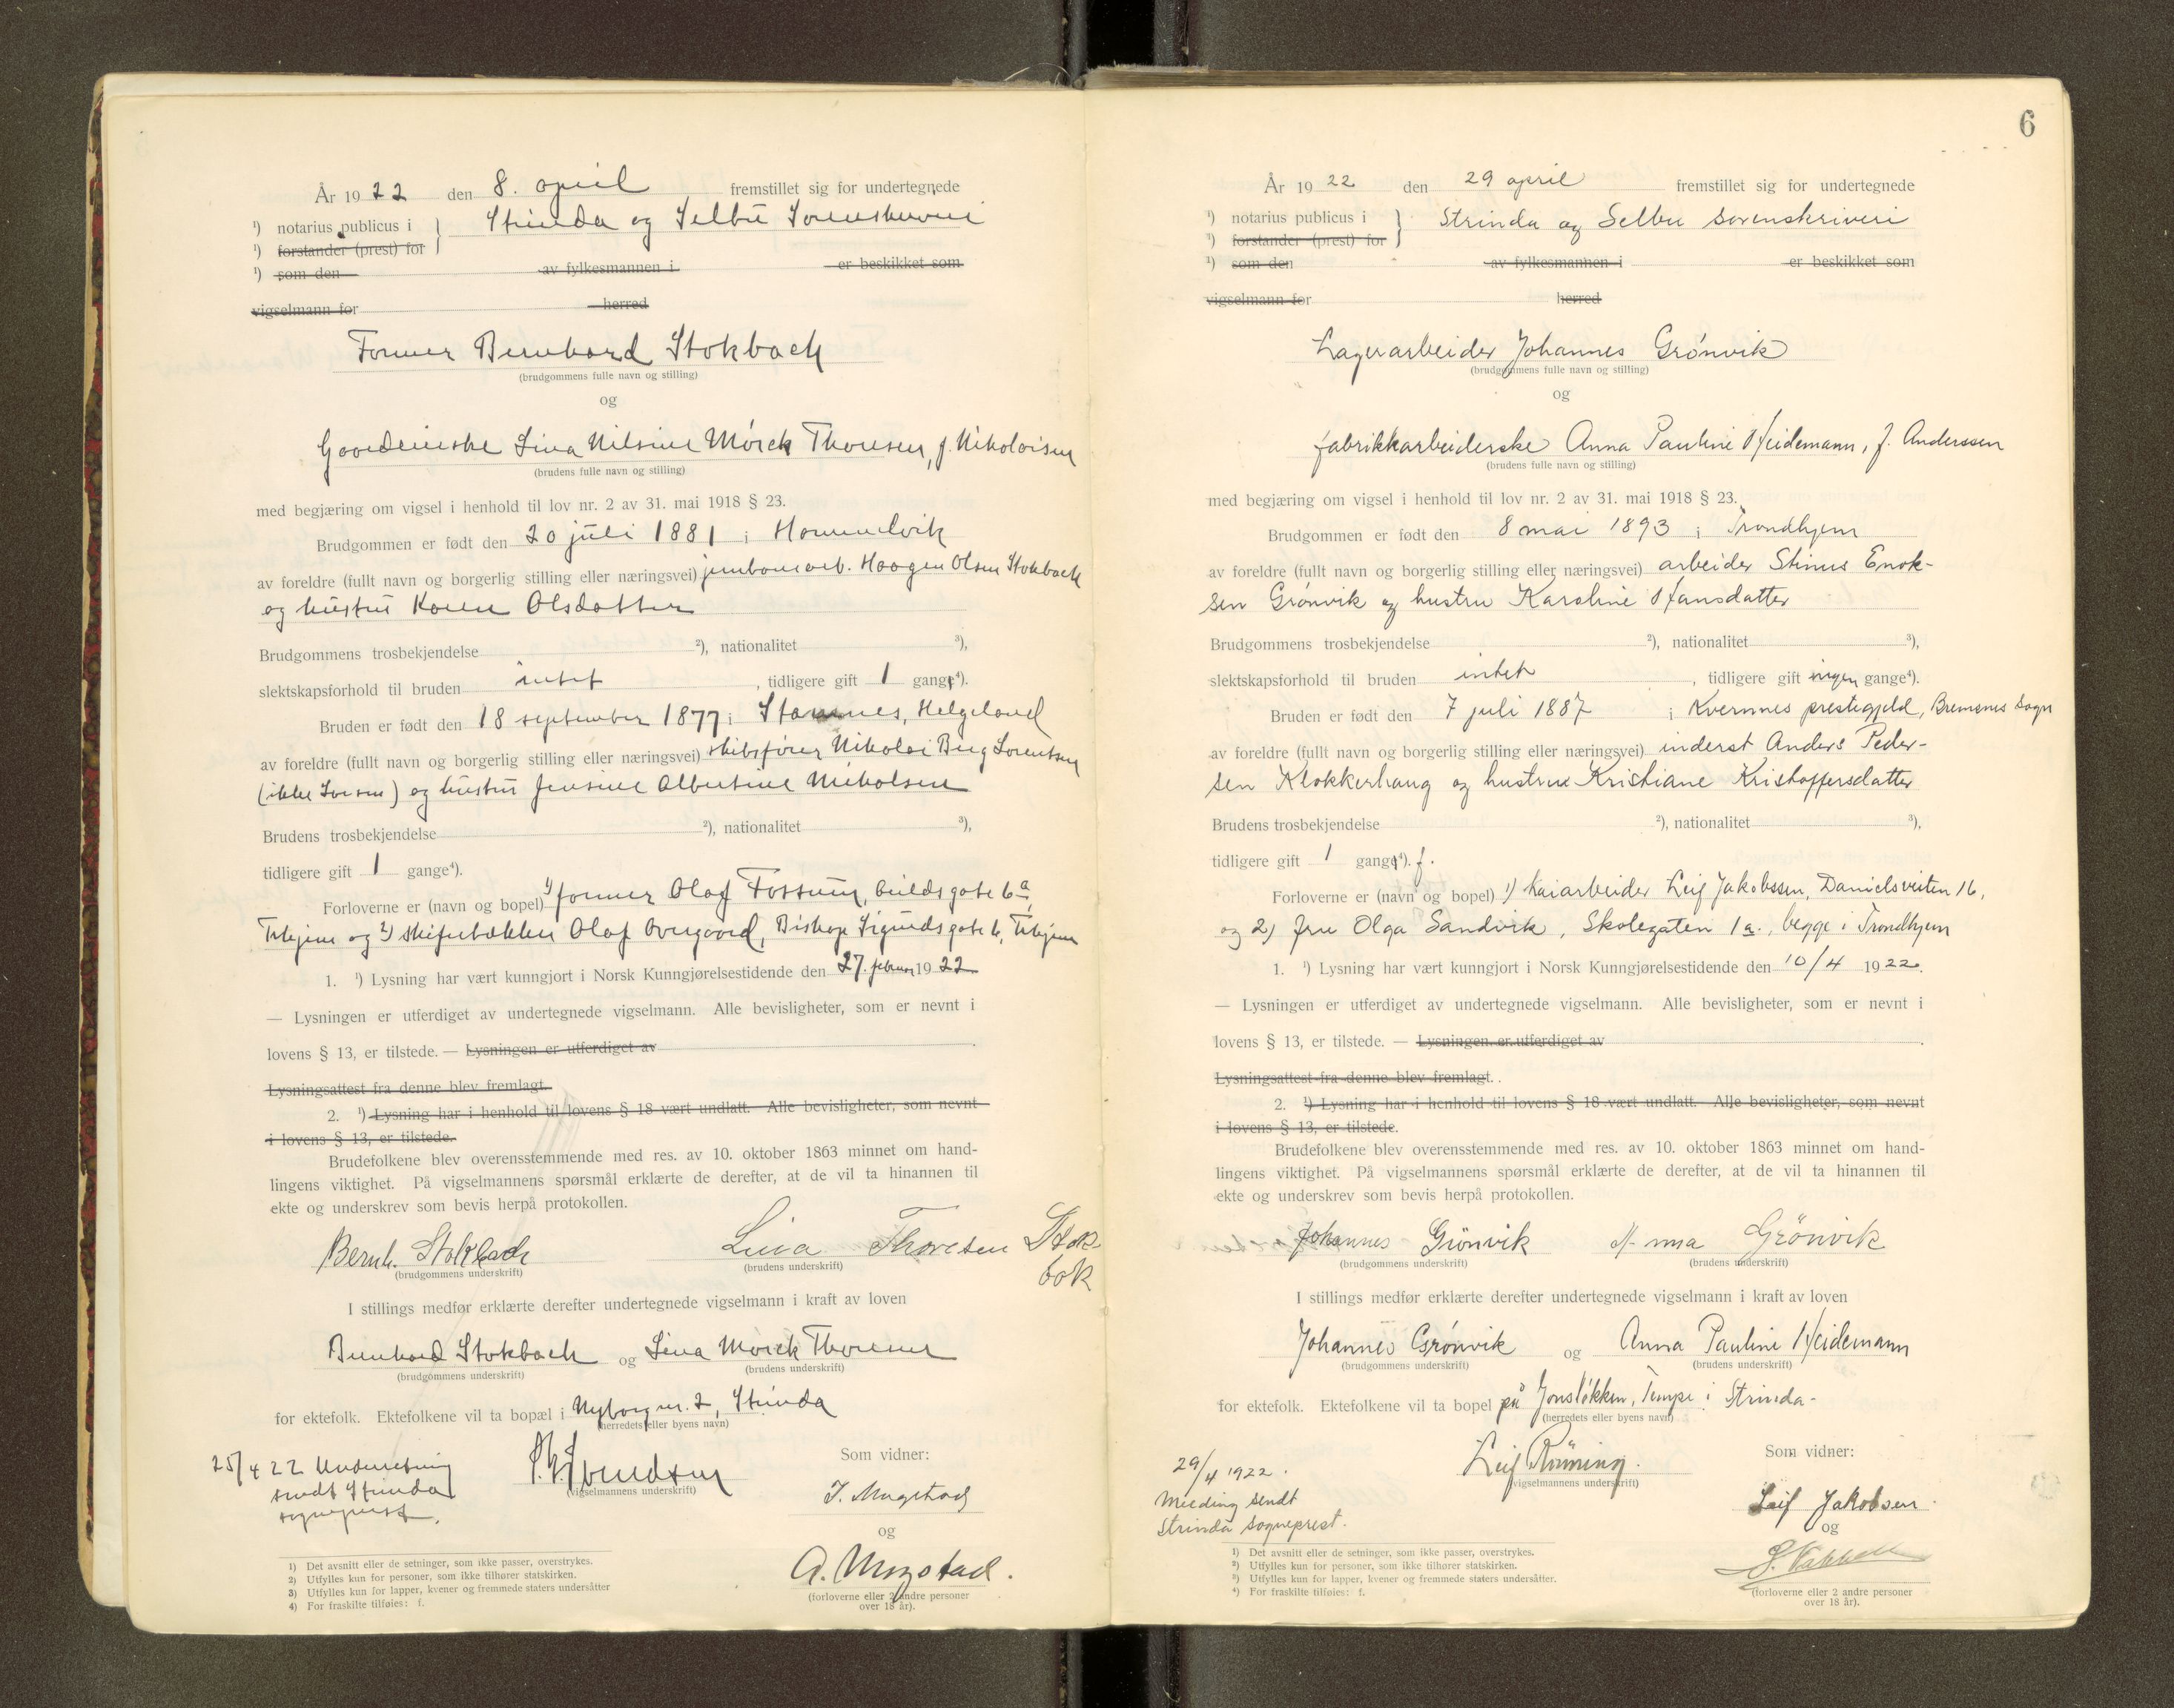 År 1922 den 8. april fremstillet sig for undertegnede
¹) notarius publicus i } Strinda og Selbu Sorenskriveri
¹) forstander (prest) for
¹) som den av fylkesmannen i er beskikket som
vigselmann for herred
Former Bernhard Stokbach
(brudgommens fulle navn og stilling)
og
Gaardeierske Lina Nilsine Mörck Thoresen, f. Nikolaisen
(brudens fulle navn og stilling)
med begjæring om vigsel i henhold til lov nr. 2 av 31. mai 1918 § 23.
Brudgommen er født den 20 juli 1881 i Hommelvik
av foreldre (fullt navn og borgerlig stilling eller næringsvei) jernbanearb. Haagen Olsen Stokbach
og hustru Karen Olsdatter
Brudgommens trosbekjendelse ²), nationalitet ³),
slektskapsforhold til bruden intet, tidligere gift 1 gang⁴).
Bruden er født den 18 september 1877 i Stamnes, Helgeland
av foreldre (fullt navn og borgerlig stilling eller næringsvei) skibsfører Nikolai Berg Lorentsen
(ikke) og hustru Jensine Albertine Nicholsen
Brudens trosbekjendelse ²), nationalitet ³),
tidligere gift 1 gange⁴).
Forloverne er (navn og bopel) ¹) former Olaf Fossum, gate 6a,
Trhjem og ²) skifertækker Olaf Overgaard, Biskop Sigurds gate 6, Trhjem
1. ¹) Lysning har vært kunngjort i Norsk Kunngjørelsestidende den 27. februar 1922
— Lysningen er utferdiget av undertegnede vigselmann. Alle bevisligheter, som er nevnt i
lovens § 13, er tilstede. — Lysningen er utferdiget av .
Lysningsattest fra denne blev fremlagt.
2. ¹) Lysning har i henhold til lovens § 18 vært undlatt. Alle bevisligheter, som nevnt
i lovens § 13, er tilstede.
Brudefolkene blev overensstemmende med res. av 10. oktober 1863 minnet om hand-
lingens viktighet. På vigselmannens spørsmål erklærte de derefter, at de vil ta hinannen til
ekte og underskrev som bevis herpå protokollen.
Bernh. Stokbach Lina Thoresen Stok-
bak
(brudgommens underskrift) (brudens underskrift)
I stillings medfør erklærte derefter undertegnede vigselmann i kraft av loven
Bernhard Stokbach og Lina Mörck Thoresen
(brudgommens underskrift) (brudens underskrift)
for ektefolk. Ektefolkene vil ta bopæl i Nyborg nr. 2, Strinda
(herredets eller byens navn)
25/4 22 Underretning
sendt Strinda
sogneprest.
(vigselmannens underskrift)
Som vidner:
og
(forloverne eller 2 andre personer
over 18 år).
1) Det avsnitt eller de setninger, som ikke passer, overstrykes.
2) Utfylles kun for personer, som ikke tilhører statskirken.
3) Utfylles kun for lapper, kvener og fremmede staters undersåtter
4) For fraskilte tilføies: f.
6
År 1922 den 29 april fremstillet sig for undertegnede
¹) notarius publicus i } Strinda og Selbu sorenskriveri
¹) forstander (prest) for
¹) som den av fylkesmannen i er beskikket som
vigselmann for herred
Lagerarbeider Johannes Grønvik
(brudgommens fulle navn og stilling)
og
fabrikkarbeiderske Anna Pauline Heidemann, f. Anderssen
(brudens fulle navn og stilling)
med begjæring om vigsel i henhold til lov nr. 2 av 31. mai 1918 § 23.
Brudgommen er født den 8 mai 1893 i Trondhjem
av foreldre (fullt navn og borgerlig stilling eller næringsvei) arbeider Stinus Enok-
sen Grønvik og hustru Karoline Hansdatter
Brudgommens trosbekjendelse ²), nationalitet ³),
slektskapsforhold til bruden intet, tidligere gift ingen gange⁴).
Bruden er født den 7 juli 1887 i Kvernnes prestegjeld, Bremsnes sogn
av foreldre (fullt navn og borgerlig stilling eller næringsvei) inderst Anders Peder-
sen Klokkerhaug og hustru Kristiane Kristoffersdatter
Brudens trosbekjendelse ²), nationalitet ³),
tidligere gift 1 gang⁴). f.
Forloverne er (navn og bopel) 1) kaiarbeider Leif Jakobssen, Danielsveiten 16,
og 2) fru Olga Sandvik, Skolegaten 1a., begge i Trondhjem
1. ¹) Lysning har vært kunngjort i Norsk Kunngjørelsestidende den 10/4 1922.
— Lysningen er utferdiget av undertegnede vigselmann. Alle bevisligheter, som er nevnt i
lovens § 13, er tilstede. — Lysningen er utferdiget av .
Lysningsattest fra denne blev fremlagt.
2. ¹) Lysning har i henhold til lovens § 18 vært undlatt. Alle bevisligheter, som nevnt
i lovens § 13, er tilstede.
Brudefolkene blev overensstemmende med res. av 10. oktober 1863 minnet om hand-
lingens viktighet. På vigselmannens spørsmål erklærte de derefter, at de vil ta hinannen til
ekte og underskrev som bevis herpå protokollen.
Johannes Grönvik Anna Grönvik
(brudgommens underskrift) (brudens underskrift)
I stillings medfør erklærte derefter undertegnede vigselmann i kraft av loven
Johannes Grønvik og Anna Pauline Heidemann
(brudgommens underskrift) (brudens underskrift)
for ektefolk. Ektefolkene vil ta bopel på Jonsløkken, Tempe i Strinda.
(herredets eller byens navn)
29/4 1922.
Melding sendt
Strinda sogneprest.
Leif Röning.
(vigselmannens underskrift)
Som vidner:
Leif Jakobsen.
og
(forloverne eller 2 andre personer
over 18 år).
¹) Det avsnitt eller de setninger, som ikke passer, overstrykes.
²) Utfylles kun for personer, som ikke tilhører statskirken.
³) Utfylles kun for lapper, kvener og fremmede staters undersåtter.
⁴) For fraskilte tilføies: f.